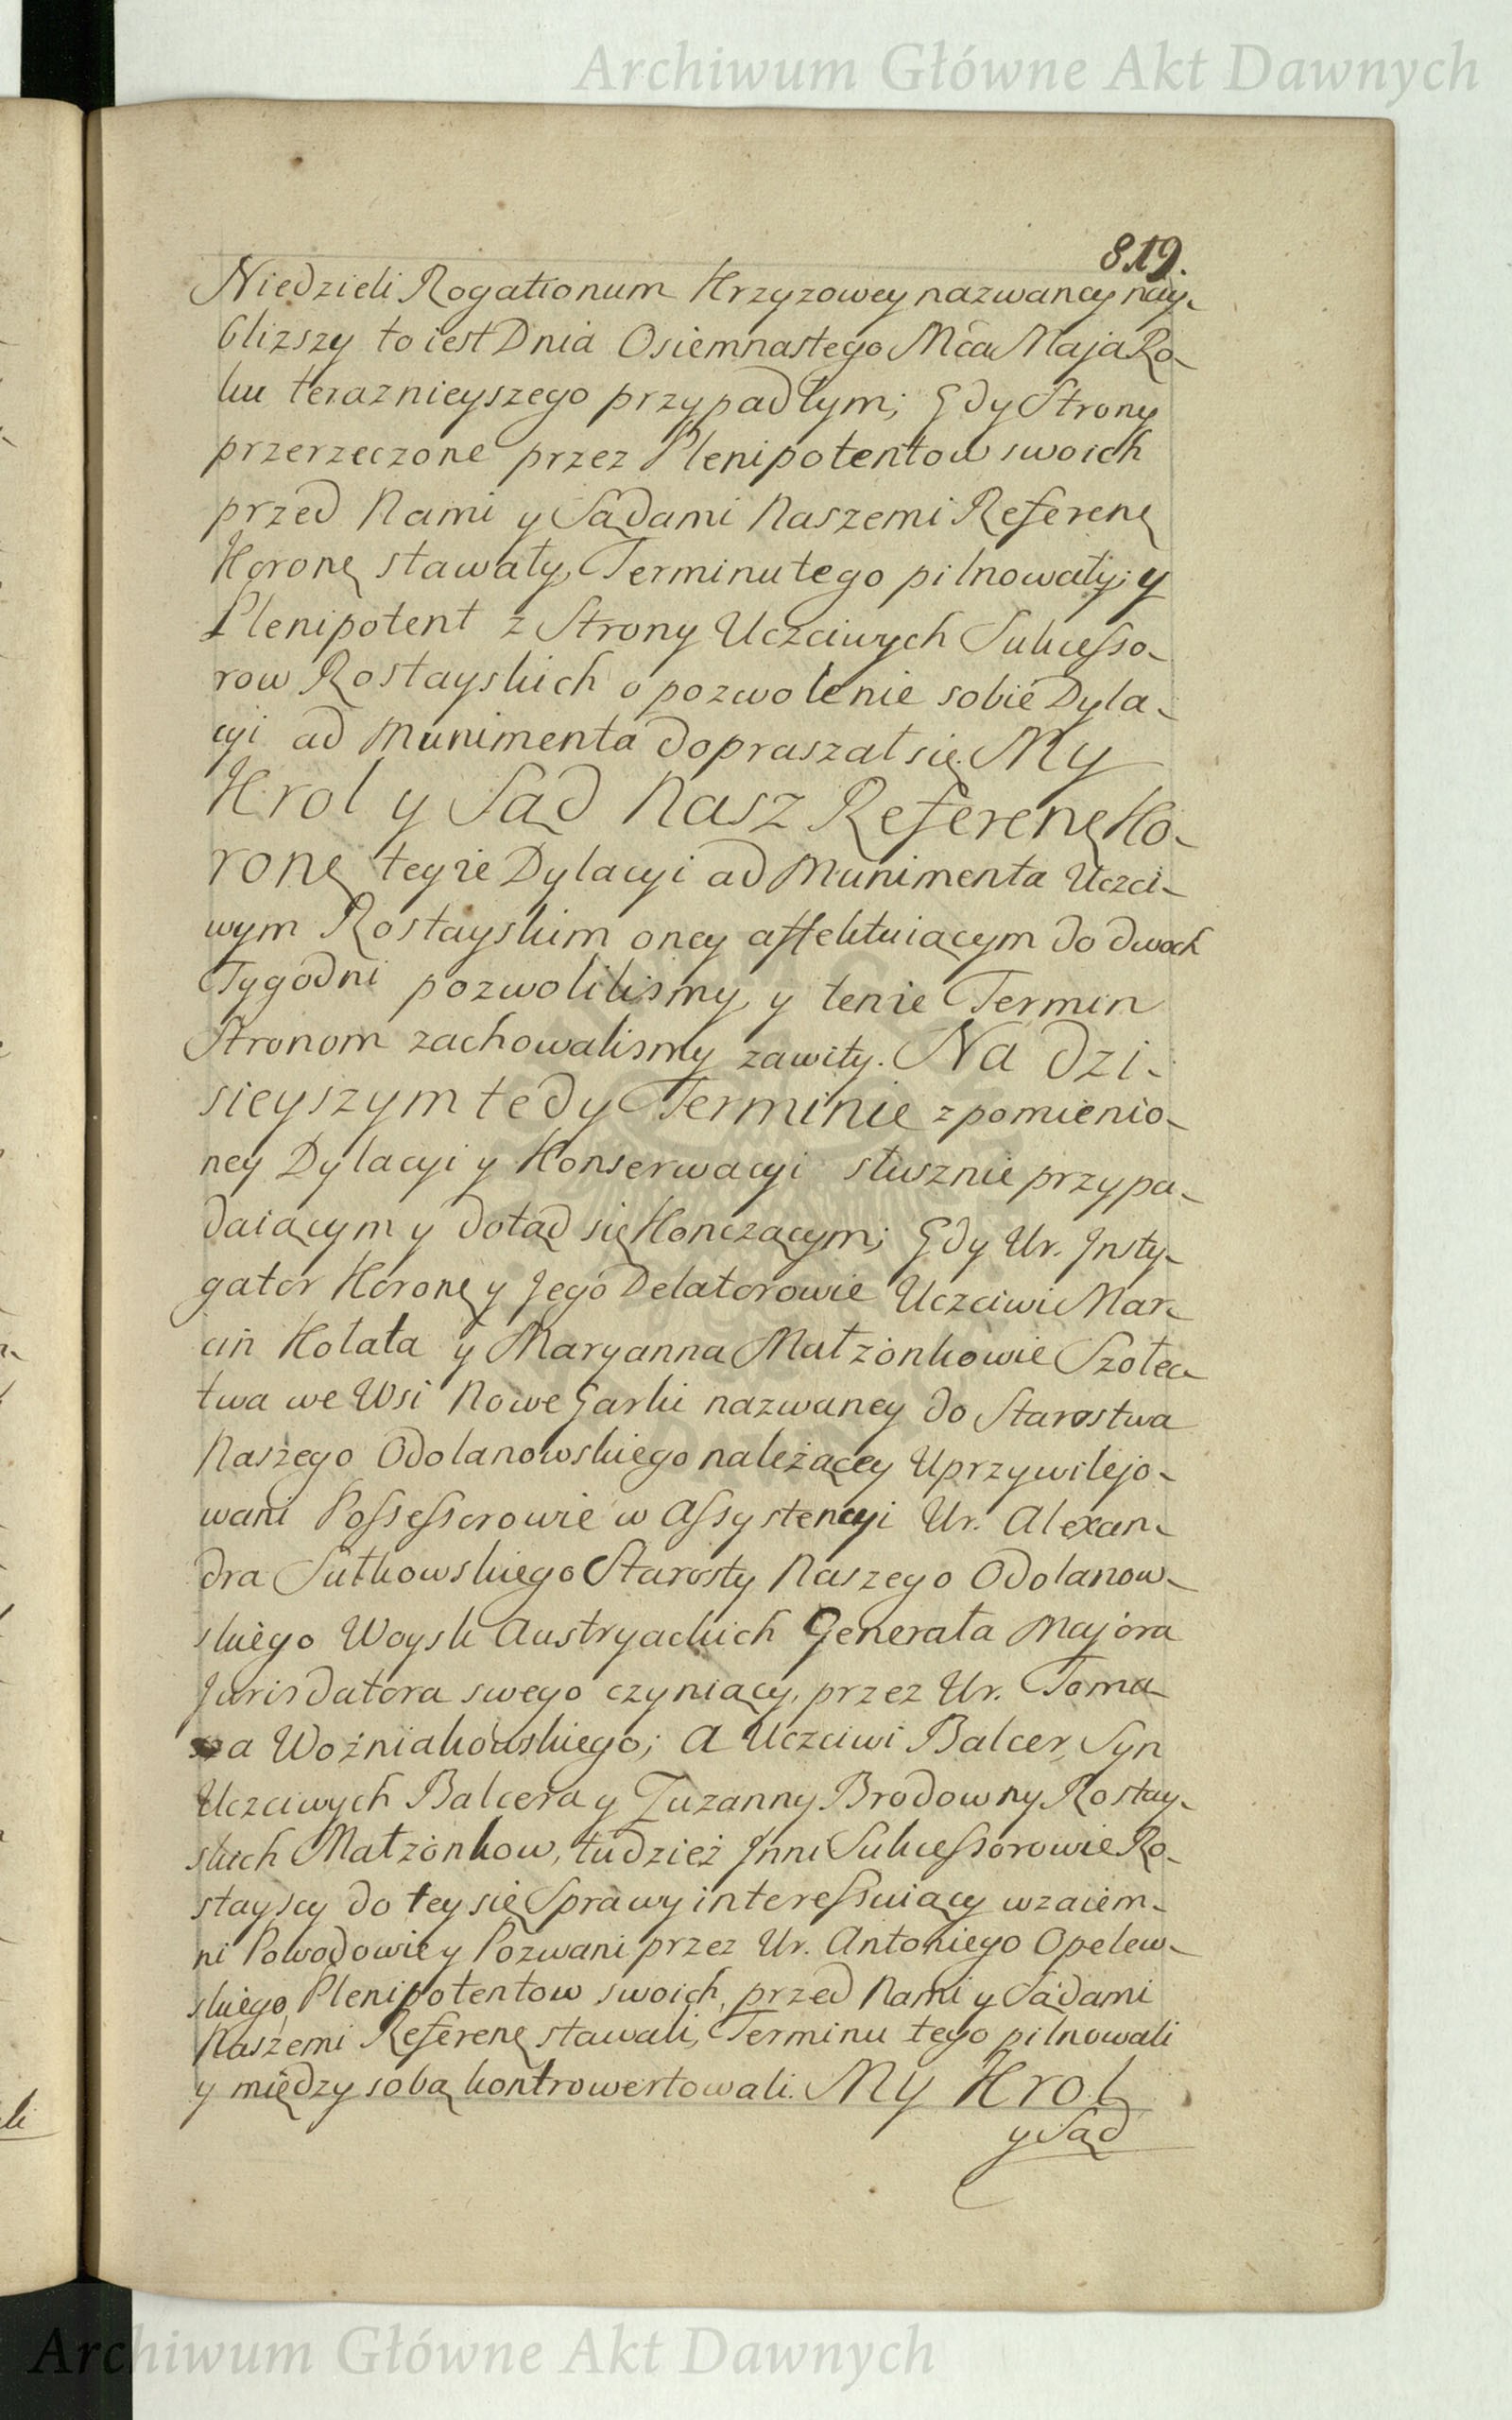 Archiwum Główne Akt Dawnych
819.
Niedzieli Rogationum Krzyzowey nazwaney nay-
blizszy to iest Dnia Osiemnastego Mca Maja Ro-
ku teraznieyszego przypadłym; Gdy Strony
przerzeczone przez Plenipotentow swoich
przed Nami y Sądami Naszemi Referenę
Koronę stawały, Terminu tego pilnowały; y
Plenipotent z Strony Uczciwych Sukcesso-
row Rostayskich o pozwolenie sobie Dyla-
cyi ad Munimenta dopraszał się. My
Krol y Sąd Nasz Referenę Ko-
ronę teyże Dylacyi ad Munimenta Uczci-
wym Rostayskim oney affektuiącym do dwoch
Tygodni pozwolilismy, y tenże Termin
Stronom zachowalismy zawity. Na dzi-
sieyszym tedy Terminie z pomienio-
ney Dylacyi y Konserwacyi słusznie przypa-
daiącym y dotąd się Konczącym; Gdy Ur. Insty-
gator Koronę y Jego Delatorowie Uczciwi Mar-
cin Kołata y Maryanna Małżonkowie Szołec-
twa we Wsi Nowe Garki nazwaney do Starostwa
Naszego Odolanowskiego należącey Uprzywilejo-
wani Possessorowie w Assystencyi Ur. Alexan-
dra Sułkowskiego Starosty Naszego Odolanow-
skiego Woysk Austryackich Generała Majora
Jurisdatora swego czyniący, przez Ur. Toma-
sza Woźniakowskiego; A Uczciwi Balcer, Syn
Uczciwych Balcera y Zuzanny Brodowny Rostay-
skich Małżonkow, tudzież Inni Sukcessorowie Ro-
stayscy do tey się Sprawy interessuiący wzaiem-
ni Powodowie y Pozwani przez Ur. Antoniego Opelew-
skiego, Plenipotentow swoich, przed Nami y Sądami
Naszemi Referenę stawali, Terminu tego pilnowali
y między sobą kontrowertowali. My Krol
y Sąd
Archiwum Główne Akt Dawnych